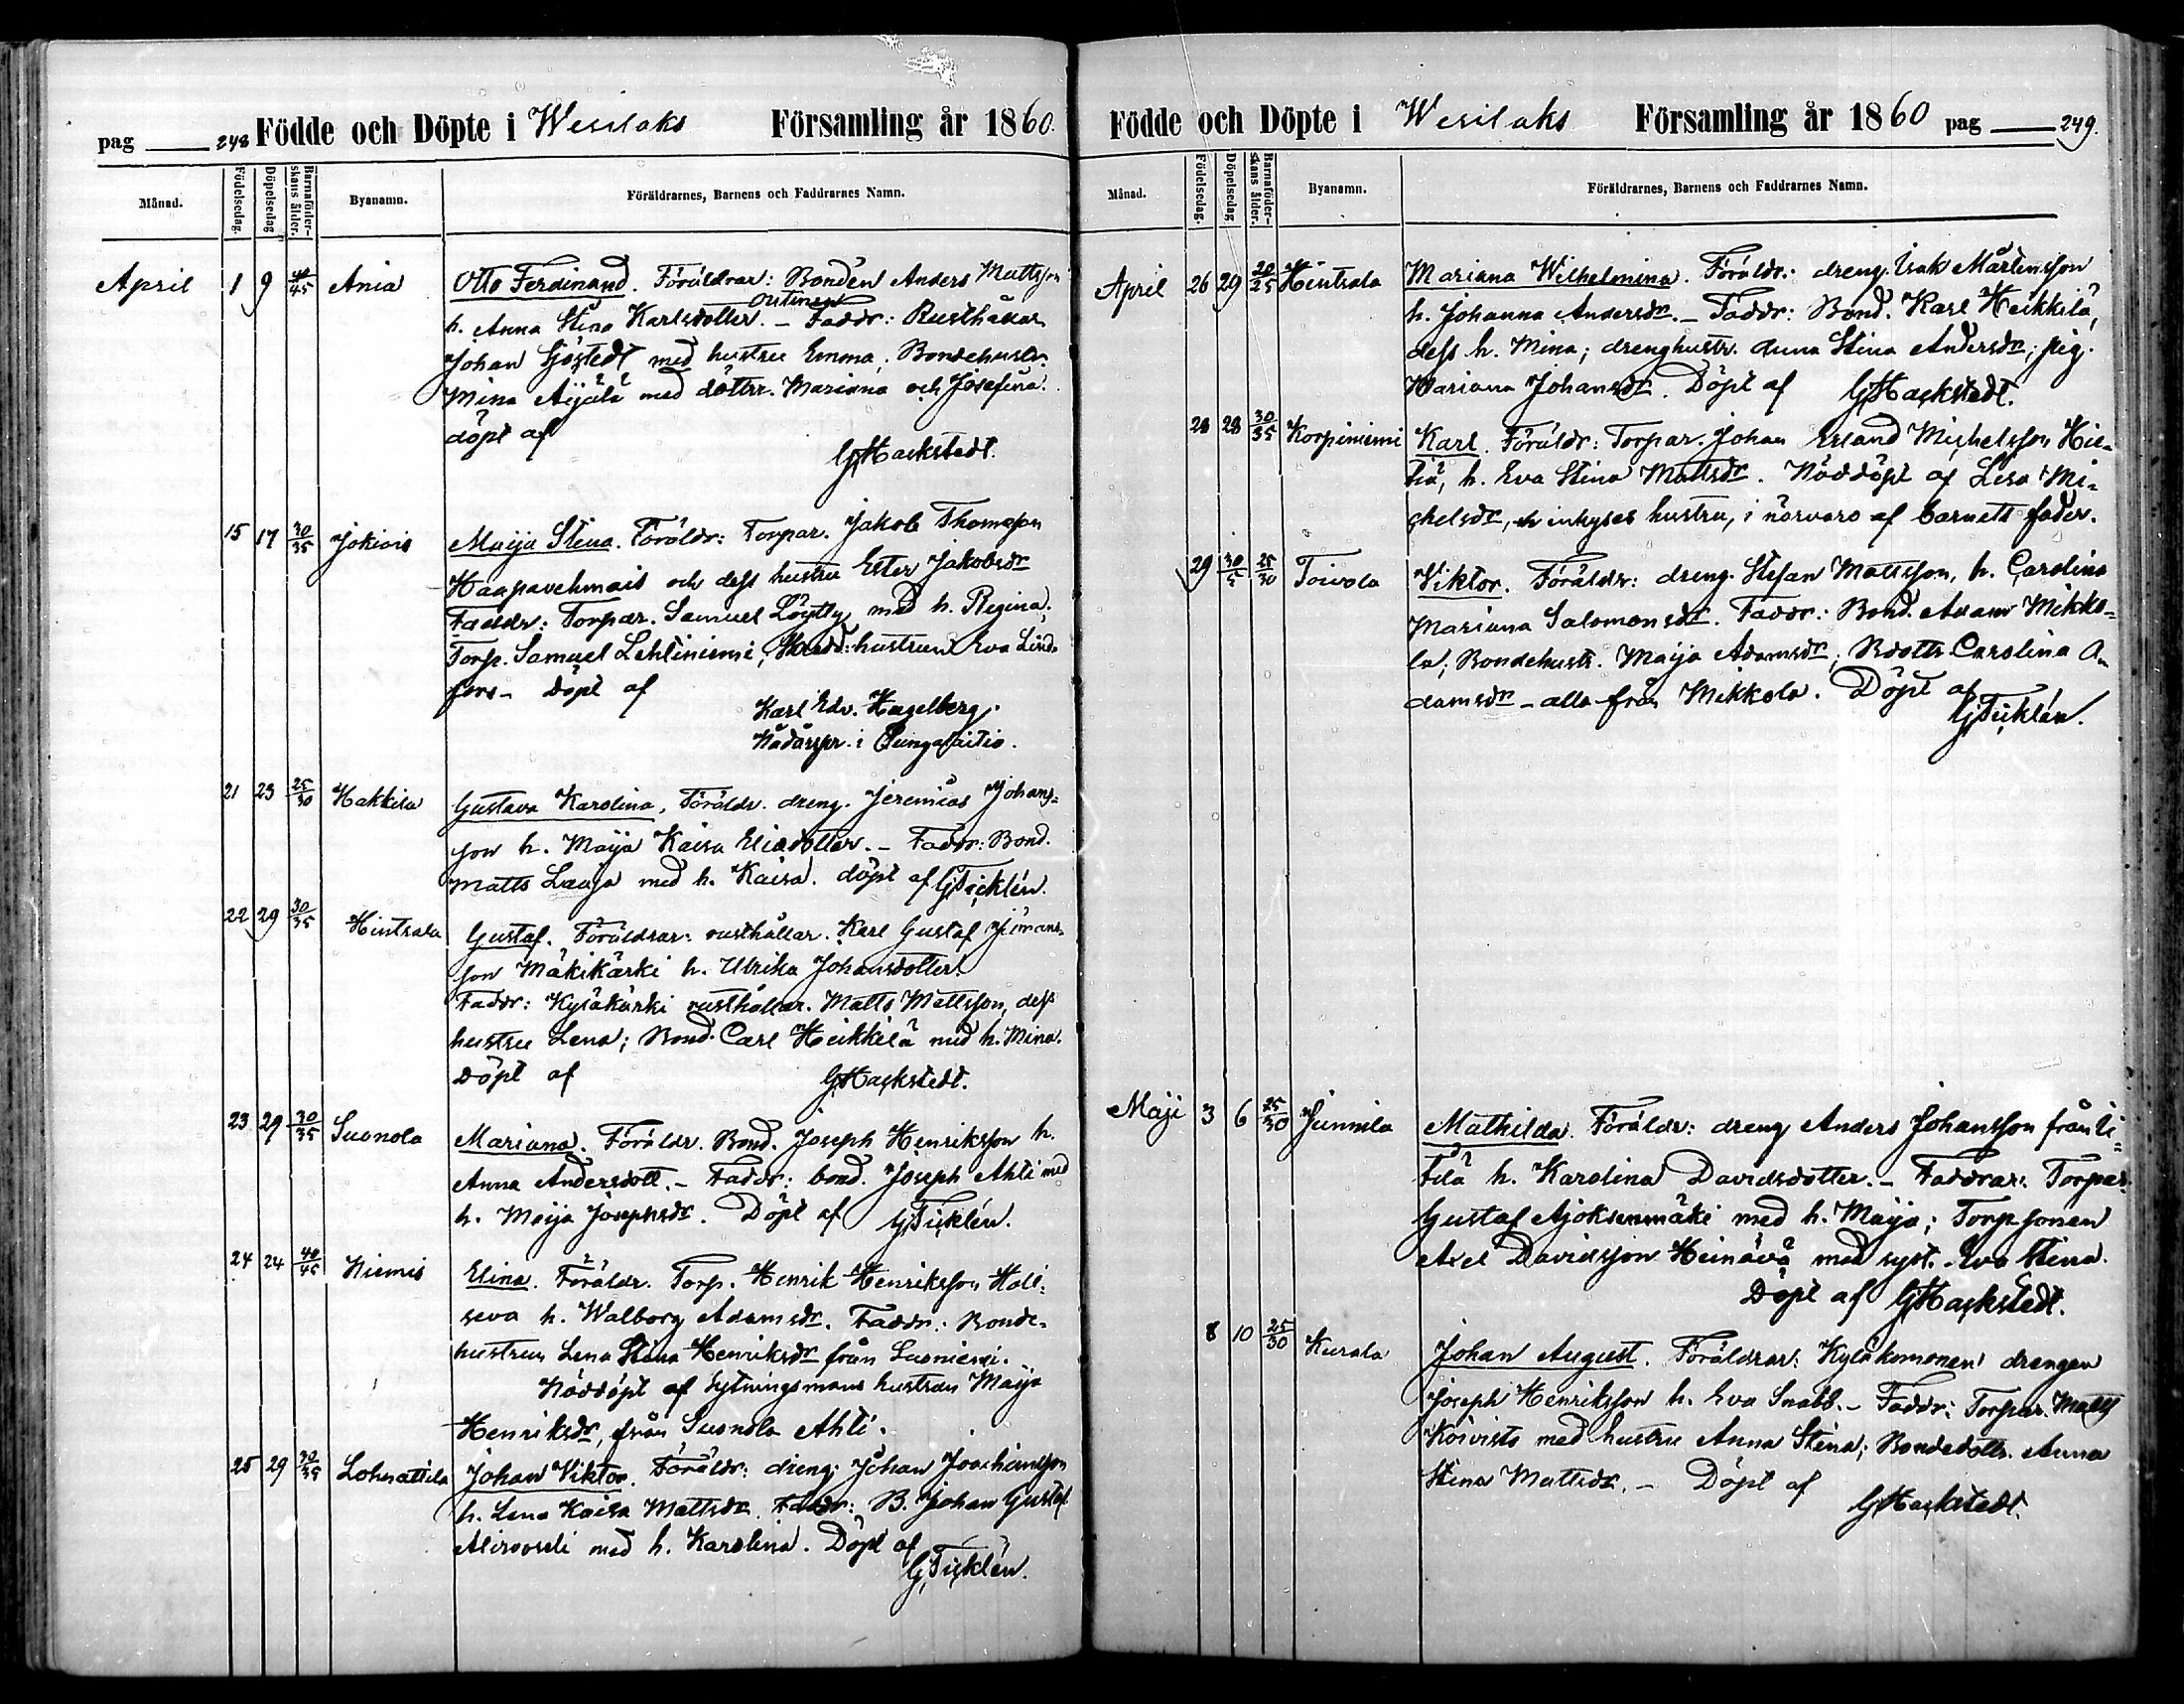 pag 248 Födde och Döpte i Wesilaks Församling år 1860.
Månad. Födelsedag. Döpelsedag Barnaföderskans ålder. Byanamn. Föräldrarnes, Barnens och Faddrarnes Namn.
April 1 9 40/45 Ania Otto Ferdinand. Föräldrar: Bonden Anders Mattsson
Outinen
h. Anna Stina Karlsdotter. – Faddr: Rusthållar
Johan Sjöstedt med hustru Emma, Bondehustr.
Mina Äijälä med döttrr. Mariana och Josefina.
döpt af
GHackstedt.
15 17 30/35 Jokiois Maija Stina. Föräldr: Torpar. Jakob Thomasson
Haapavehmais och dess hustru Ester Jakobsdr
Faddr: Torpar. Samuel Löytty med h. Regina;
Torp. Samuel Lehtiniemi; hustrun Eva Lind-
fors – Döpt af
Karl Edv. Hagelberg.
Nådårspr. i
21 23 25/30 Hakkila Gustava Karolina, Föräldr. dreng. Jeremias Johans=
son h. Maija Kaisa Eliadotter. – Faddr: Bond.
Matts Lauja med h. Kaisa. döpt af GTicklén.
22 29 30/35 Hintsala Gustaf. Föräldrar: rusthållar. Karl Gustaf
son Mäkikärki h. Ulrika Johansdotter.
Faddr: Kyläkärki rusthållar. Matts Mattsson, dess
hustru Lena; Bond. Carl Heikkilä med h. Mina.
Döpt af GHackstedt.
23 29 30/35 Suonola Mariana. Föräldr. Bond. Joseph Henriksson h.
Anna Andersdott. – Faddr: bond. Joseph Ahti med
h. Maija Josephsdr. Döpt af GTicklén.
24 24 40/45 Niemis Elina. Föräldr. Torp. Henrik Henriksson Holl=
seva h. Walborg Adamsdr. Faddr.: Bonde-
hustrun Lena Stina Henriksdr från Suoniemi.
Nöddöpt af Sytningsmans hustrun Maija
Henriksdr, från Suonola Ahti.
25 29 30/35 Lohenattila Johan Viktor. Föräldr: dreng. Johan Joachimsson
h. Lena Kaisa Mattsdr. Faddr: B. Johan Gustaf
Alirovsti med h. Karolina. Döpt af
GTicklén.
Födde och Döpte i Wesilaks Församling år 1860 pag 249.
Månad. Födelsedag. Döpelsedag Barnaföderskans ålder. Byanamn. Föräldrarnes, Barnens och Faddrarnes Namn.
April 26 29 20/25 Hintsala Mariana Wilhelmina. Föräldr: dreng. Isak Mårtensson
h. Johanna Andersdr. – Faddr: Bond. Karl Heikkilä,
dess h. Mina; drenghustr. Anna Stina Andersdr; pig.
Mariana Johansdr. Döpt af GHackstedt.
28 28 30/35 Korpiniemi Karl. Föräldr: Torpar. Johan Erland Michelsson Hie-
tia, h. Eva Stina Mattsdr. Nöddöpt af Lisa Mi-
chelsdr, en inhyses hustru, i närvaro af barnets fader.
29 30/5 25/30 Toivola Viktor. Föräldr: dreng. Stefan Mattsson, h. Carolina
Mariana Salomonsdr. Faddr: Bond. Adam Mikko-
la; Bondehustr. Maija Adamsdr; Bdottr Carolina A-
damsdr – alla från Mikkola. Döpt af
GTicklén.
Maji 3 6 25/30 Junnila Mathilda. Föräldr: dreng Anders Johansson från Ui=
tila h. Karolina Davidsdotter. – Faddrar: Torpar.
Gustaf Ajoksenmäki med h. Maija; Torpsonen
Axel Davidsson Heinävä med syst. Eva Stina.
Döpt af GHackstedt.
8 10 25/30 Kurala Johan August. Föräldrar: Kyläkomonen drengen
Joseph Henriksson h. Eva Snabb. – Faddr: Torpar. Matts
Koivisto med hustru Anna Stina; Bondedottr. Anna
Stina Mattsdr. – Döpt af
GHackstedt.